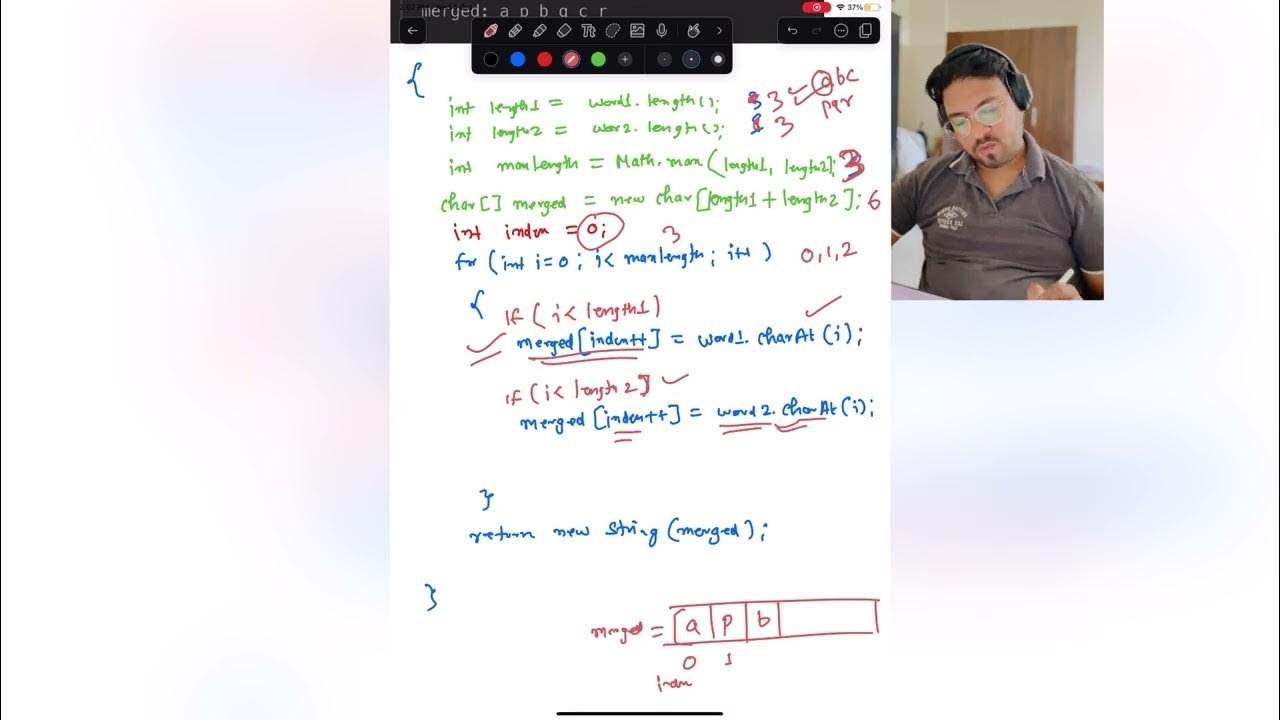 merged: a p b q c r
37%
{
int length1 = word1.length(); 3 3 abc
int length2 = wor2.length(); 3 pqr
int maxLength = Math.max(length1, length2]; 3
char[] merged = new char[length1 + length2]; 6
int index = 0; 3
for (int i=0; i< maxlength; i++) 0,1,2
{ if (i< length1)
merged[index++] = word1.charAt(i);
if (i< length2]
merged [index++] = word2.charAt(i);
}
return new string(merged);
}
merged = a p b
0 1
index